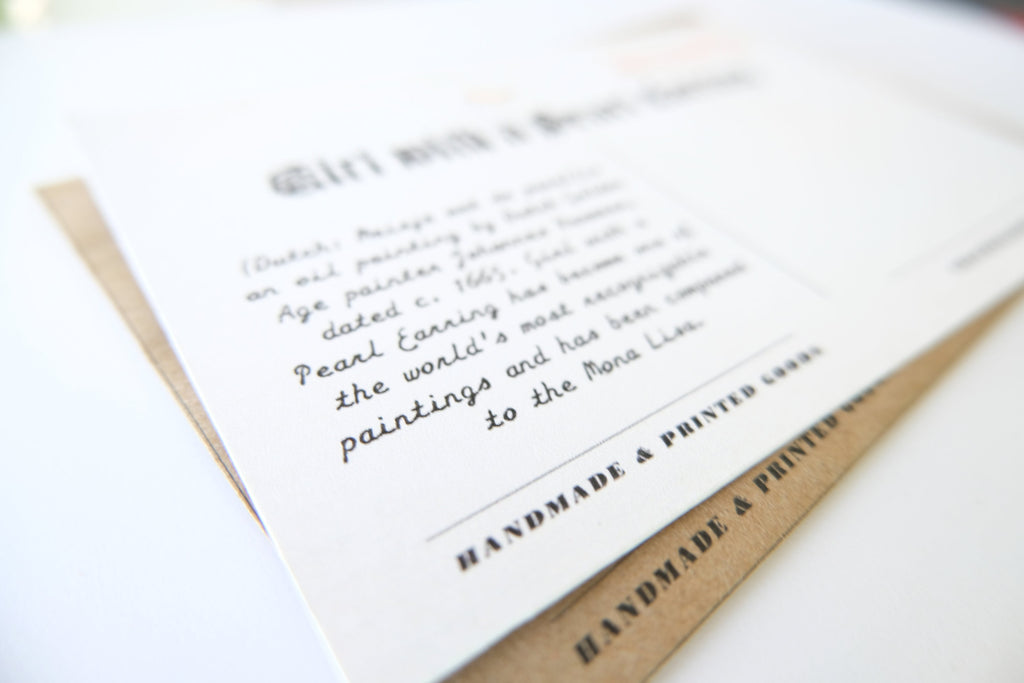 Girl with a Pearl Earring
(Dutch: Meisje met de
an oil painting by Dutch Golden
Age painter Johannes Vermeer,
dated c. 1665. Girl with a
Pearl Earring has become one of
the world's most recognizable
paintings and has been compared
to the Mona Lisa.
HANDMADE & PRINTED GOODS
HANDMADE & PRINTED GOODS